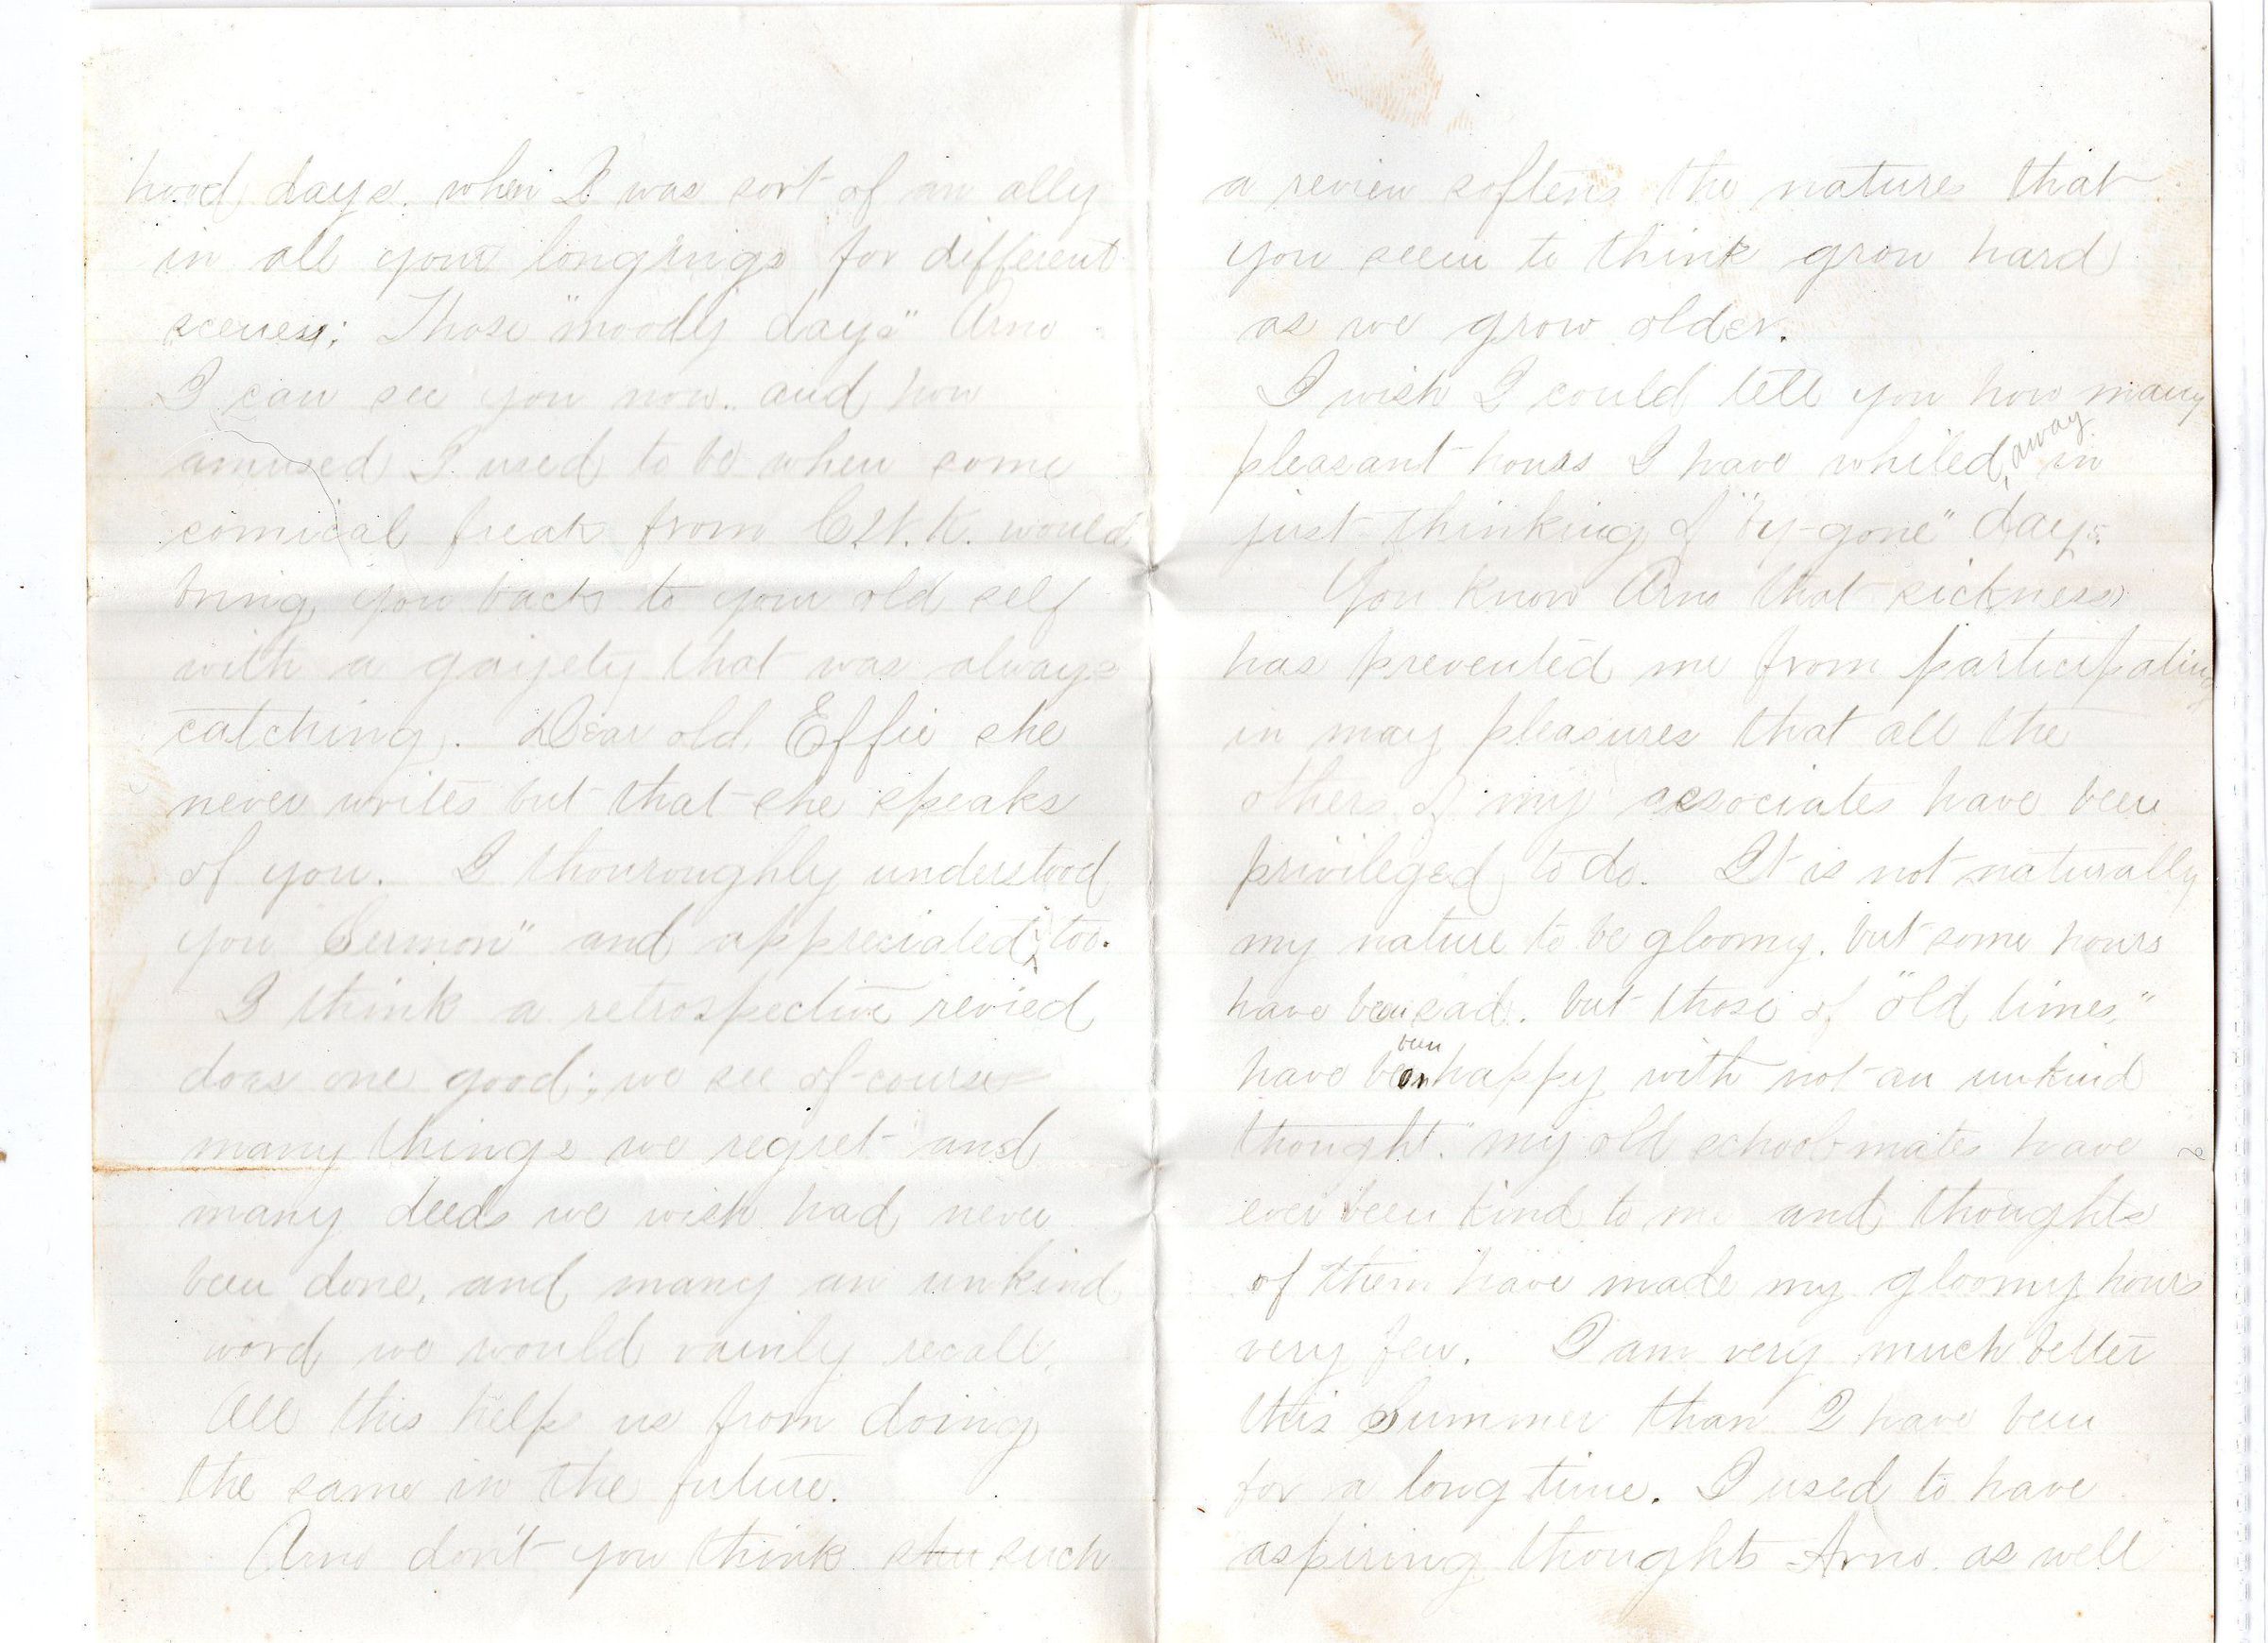 hood days. when I was sort of an ally
in all your longings for different
scenes; Those "moody days" Arno
I can see you now. and how
amused I used to be when some
comical freak from would
bring you back to your old self
with a gayety that was always
catching. Dear old Effie she
never writes but that she speaks
of you. I thouroughly understood
you Sermon" and appreciated it too.
I think a retrospective revied
does one good; we see of course
many things we regret and
many deeds we wish had never
been done, and many an unkind
word we would vainly recall,
All this help us from doing
the same in the future.
Arno don't you think such
a review softens the natures that
you seem to think grow hard
as we grow older.
I wish I could tell you how many
pleasant hours I have whiled away in
just thinking of "by-gone" days.
You know Arno that sickness
has prevented me from participating
in many pleasures that all the
others of my associates have been
privileged to do. It is not naturally
my nature to be gloomy. but some hours
have been sad. but those of "old times"
have been happy with not an unkind
thought. "my old school-mates have
ever been kind to me and thoughts
of them have made my gloomy hours
very few. I am very much better
this Summer than I have been
for a long time. I used to have
aspiring thoughts Arno. as well